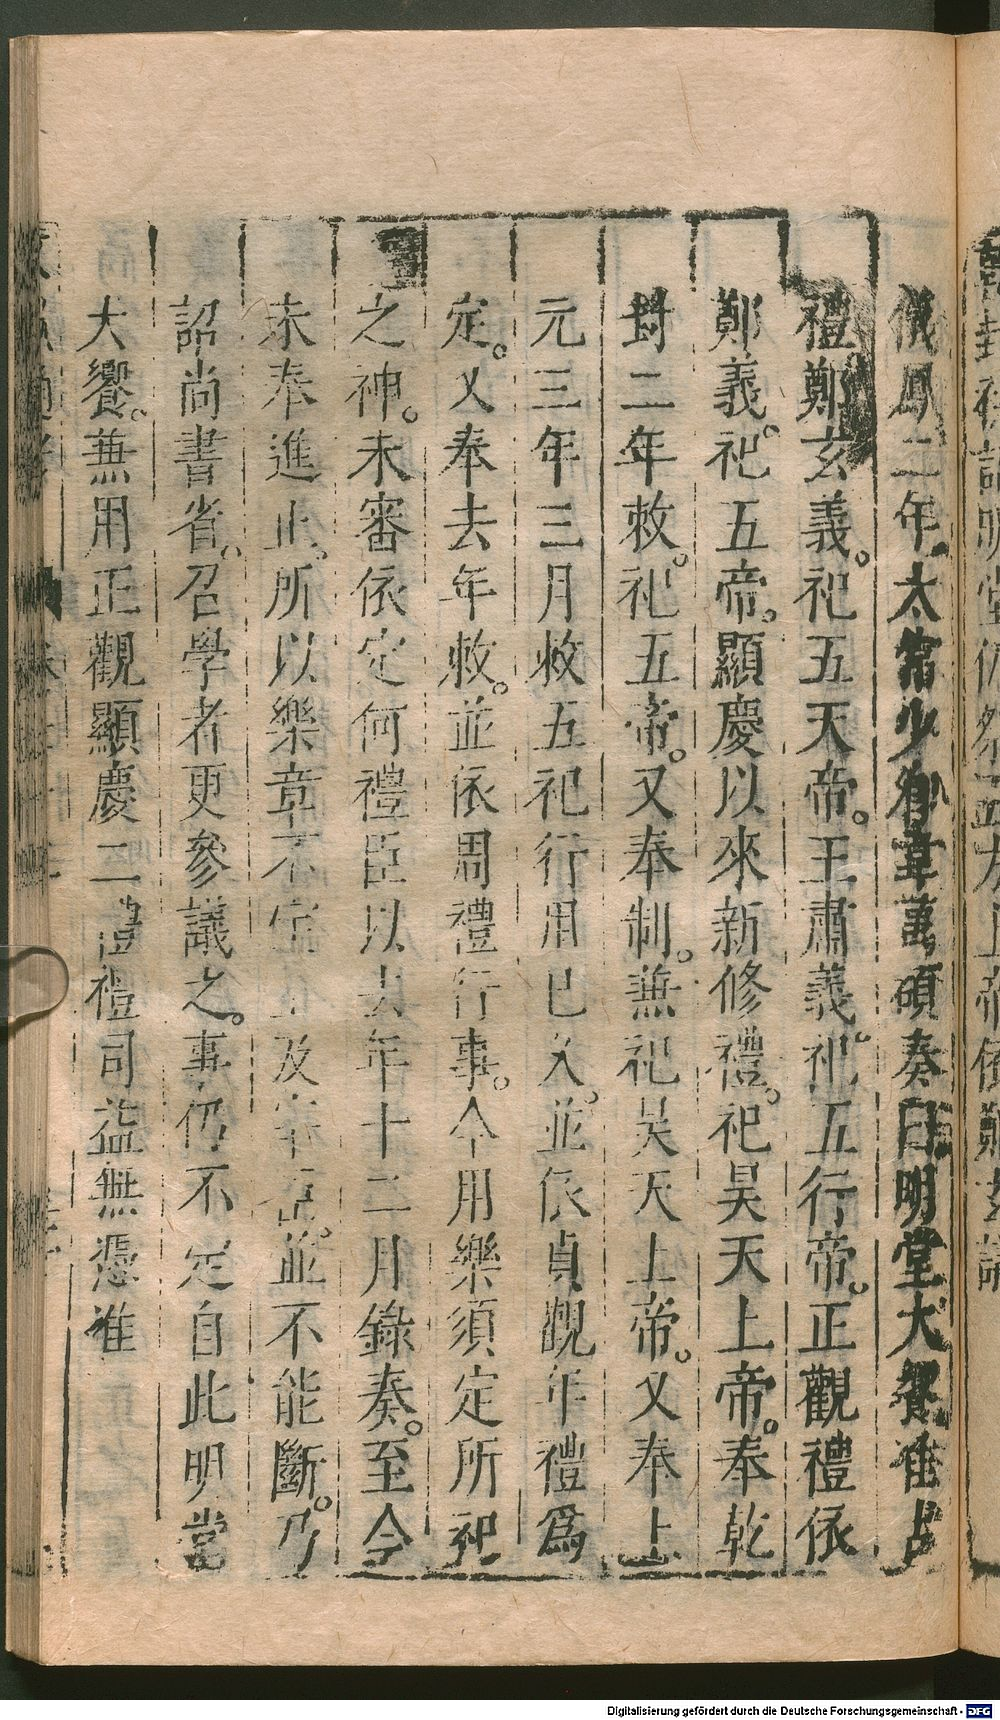 儀鳳二年太常少卿韋萬碩奏曰明堂大饗准古
禮鄭玄義。祀五天帝。王肅義。祀五行帝。正觀禮依
鄭義。祀五帝。顯慶以來新修禮。祀昊天上帝。奉乾
封二年敕。祀五帝。又奉制。兼祀昊天上帝。又奉上
元三年三月敕五祀行用已久。並依貞觀年禮爲
定。又奉去年敕。並依周禮行事。今用樂須定所祀
之神。未審依定何禮臣以去年十二月錄奏。至今
未奉進止。所以樂章不定上及宰臣。並不能斷。乃
詔尚書省。召學者更參議之。事仍不定自此明堂
大饗。兼用正觀顯慶二禮禮司益無憑准
Digitalisierung gefördert durch die Deutsche Forschungsgemeinschaft - DFG